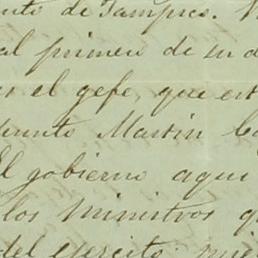 nto de Tampico.
al primero de su d
el gefe, que est
punto Martin
El gobierno aqui
los ministros q
del ejercito